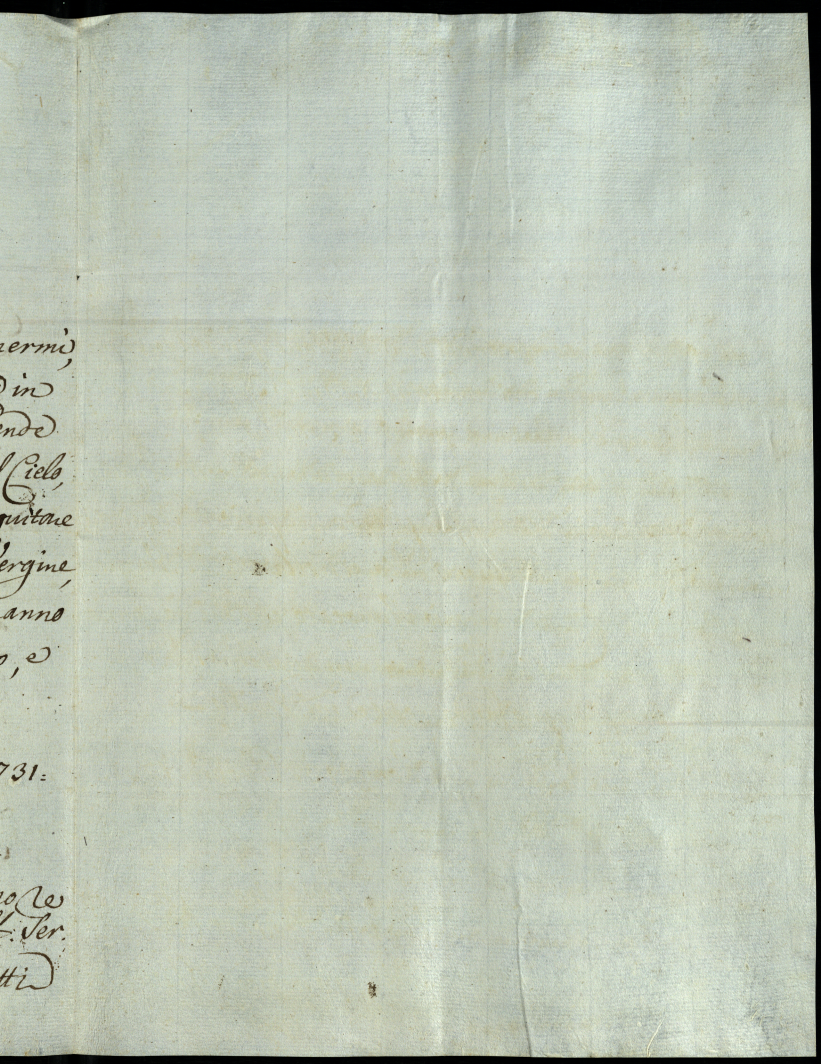 nermi,
in
ende
l Cielo,
quitare
ergine,
anno
o, e
731=
Ser.
tti